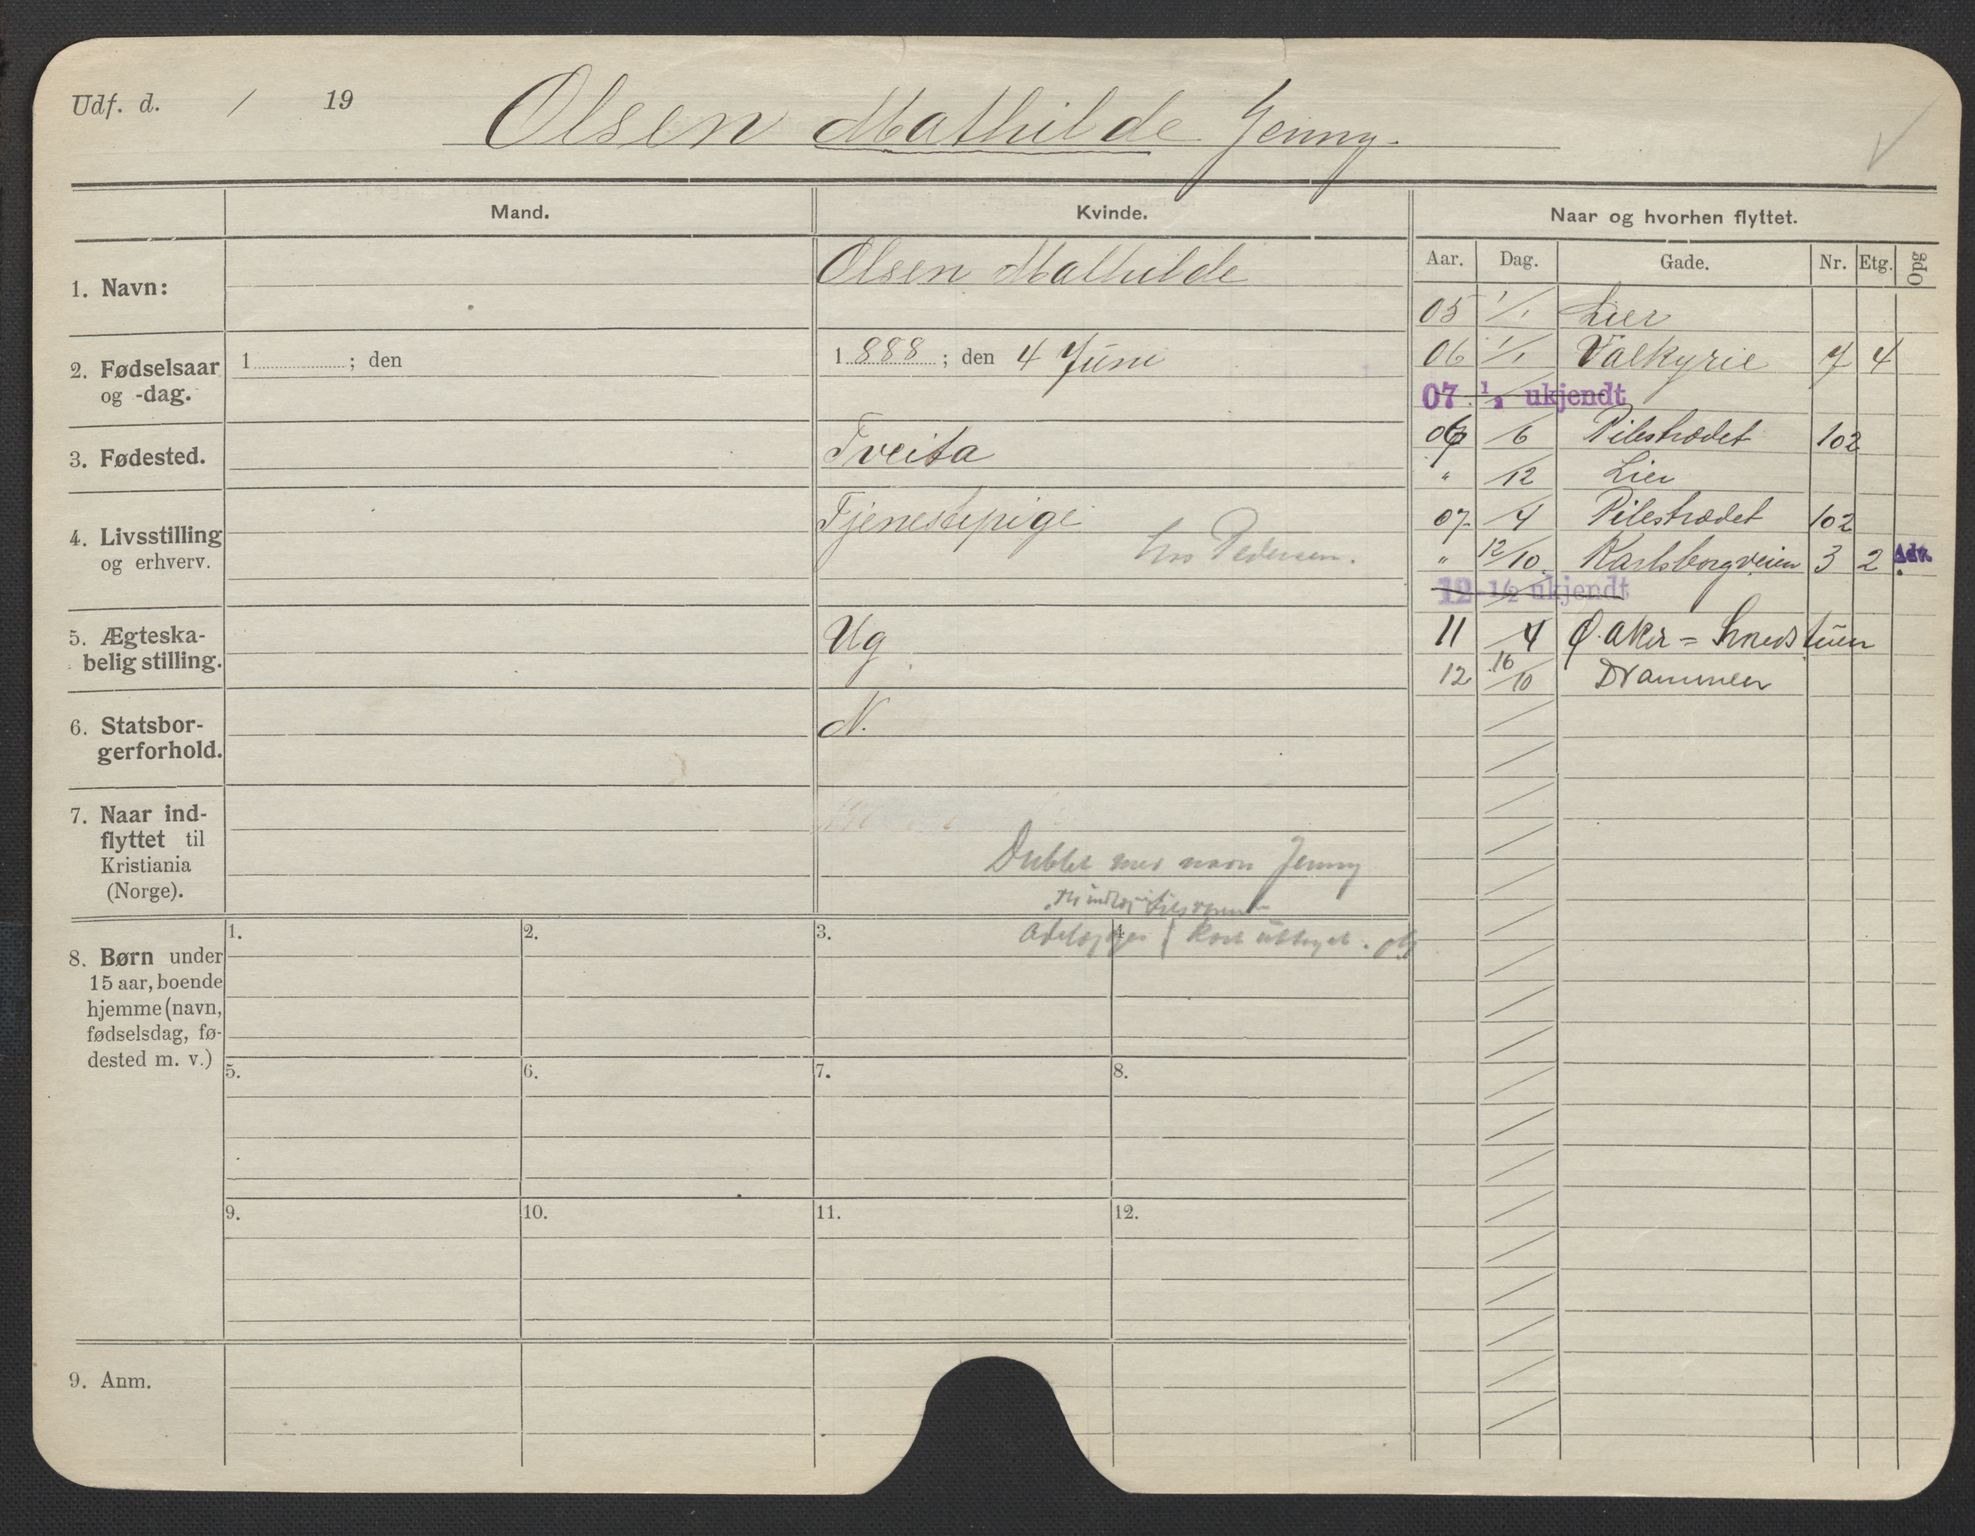 Udf. d. / 19
Olsen Mathilde Jenny.
Mand.
Kvinde.
Naar og hvorhen flyttet.
Aar. Dag. Gade. Nr. Etg. Opg
1. Navn:
Olsen Mathilde
2. Fødselsaar
og -dag.
1 ; den
1888 ; den 4 Juni
3. Fødested.
Tveita
4. Livsstilling
og erhverv.
Tjenestepige
hos Pedersen.
5. Ægteska-
belig stilling.
Ug
6. Statsbor-
gerforhold.
N.
7. Naar ind-
flyttet til
Kristiania
(Norge).
Dublet med navn Jenny
kort
8. Børn under
15 aar, boende
hjemme (navn,
fødselsdag, fø-
dested m. v.)
1. 2. 3. 4.
5. 6. 7. 8.
9. 10. 11. 12.
9. Anm.
05 1/1 Lier
06 1/1 Valkyrie 7 4
07 1/2 ukjendt
06 /6 Pilestrædet 102
" /12 Lier
07 /4 Pilestrædet 102
" 12/10 Karlsborgveien 3 2 Adr.
12 1/2 ukjendt
11 /4 Ø. Aker = Smedstuen
12 16/10 Drammen